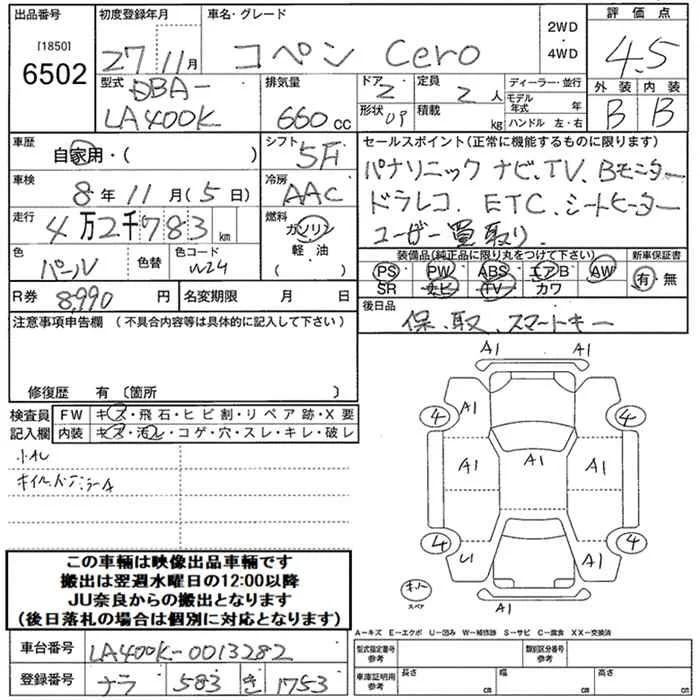 出品番号 初度登録年月 車名・グレード 評価点
[1850]
6502
27年11月 コペン Cero 2WD・4WD 4.5
型式 DBA-
LA400K
排気量 660cc
ドア 2 定員 2人 ディーラー・並行
形状 OP 積載 kg モデル年式 年
ハンドル 左・右
外装 内装
B B
車歴 自家用・( )
シフト 5F
セールスポイント(正常に機能するものに限ります)
車検 8年11月(5日)
冷房 AAC
パナソニック ナビ、TV、Bモニター
ドラレコ、ETC、シートヒーター
ユーザー買取り、
走行 4万2千783km
燃料 ガソリン
軽油
( )
色 パール 色替 色コード W24
装備品(純正品に限り丸をつけて下さい) 新車保証書
PS PW ABS エアB AW
SR ナビ TV カワ
有・無
R券 8,990円 名変期限 月 日
後日品 保、取、スマートキー
注意事項申告欄 (不具合内容等は具体的に記入して下さい)
修復歴 有〔箇所 〕
検査員記入欄
FW キズ・飛石・ヒビ割・リペア跡・X要
内装 キズ・汚レ・コゲ・穴・スレ・キレ・破レ
A1 A1
4 A1 4
A1 A1 A1
4 U1 A1 4
スペア
A1
この車輛は映像出品車輛です
搬出は翌週水曜日の12:00以降
JU奈良からの搬出となります
(後日落札の場合は個別に対応となります)
A―キズ E―エクボ U―凹み W―補修跡 S―サビ C―腐食 XX―交換済
車台番号 LA400K-0013282
型式指定番号 参考 類別区分番号 参考
登録番号 ナラ 583 き 1753
車庫証明用 参考 長さ cm 幅 cm 高さ cm